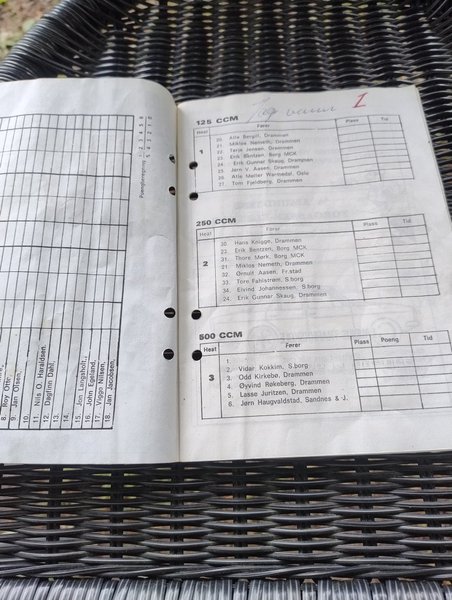 Poengberegning: 1 2 3 4 5 6
5 4 3 2 1 0
8. Roy Otto
9. Jan Olsen,
10.
11. Nils O. Haraldsen,
12. Dagfinn Dahl,
13.
14.
15. Jon Langaholt,
16. John Egeland,
17. Viggo Nilsen,
18. Jan Jacobsen,
125 CCM
1
Heat Fører Plass Tid
1
20. Atle Bergli, Drammen
21. Miklos Nemeth, Drammen
22. Terje Jensen, Drammen
23. Erik Bentzen, Borg MCK
24. Erik Gunnar Skaug, Drammen
25. Jern V. Aasen, Drammen
26. Atle Møller Warsedal, Oslo
27. Tom Fjeldberg, Drammen
250 CCM
Heat Fører Plass Tid
2
30. Hans Knigge, Drammen
23. Erik Bentzen, Borg MCK
31. Thore Mørk, Borg MCK
21. Miklos Nemeth, Drammen
32. Ørnulf Aasen, Fr.stad
33. Tore Fahlstrøm, S.borg
34. Eivind Johannessen, S.borg
24. Erik Gunnar Skaug, Drammen
500 CCM
Heat Fører Plass Poeng Tid
3
1.
2. Vidar Kokkim, S.borg
3. Odd Kirkebø, Drammen
4. Øyvind Røkeberg, Drammen
5. Lasse Juritzen, Drammen
6. Jørn Haugvaldstad, Sandnes & J.